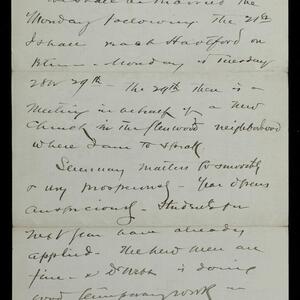 Monday following the 21st
I shall reach Hartford on
Monday or Tuesday
28 or 29th - the 29th there is a
meeting in behalf of a new
Church in the Glenwood neighborhood
where I am to speak.
Seminary matters go smoothly
& very prosperously - Year opens
auspiciously - Students for
next year have already
applied. The new men are
fine - & Dr Webb is doing
good temporary work in